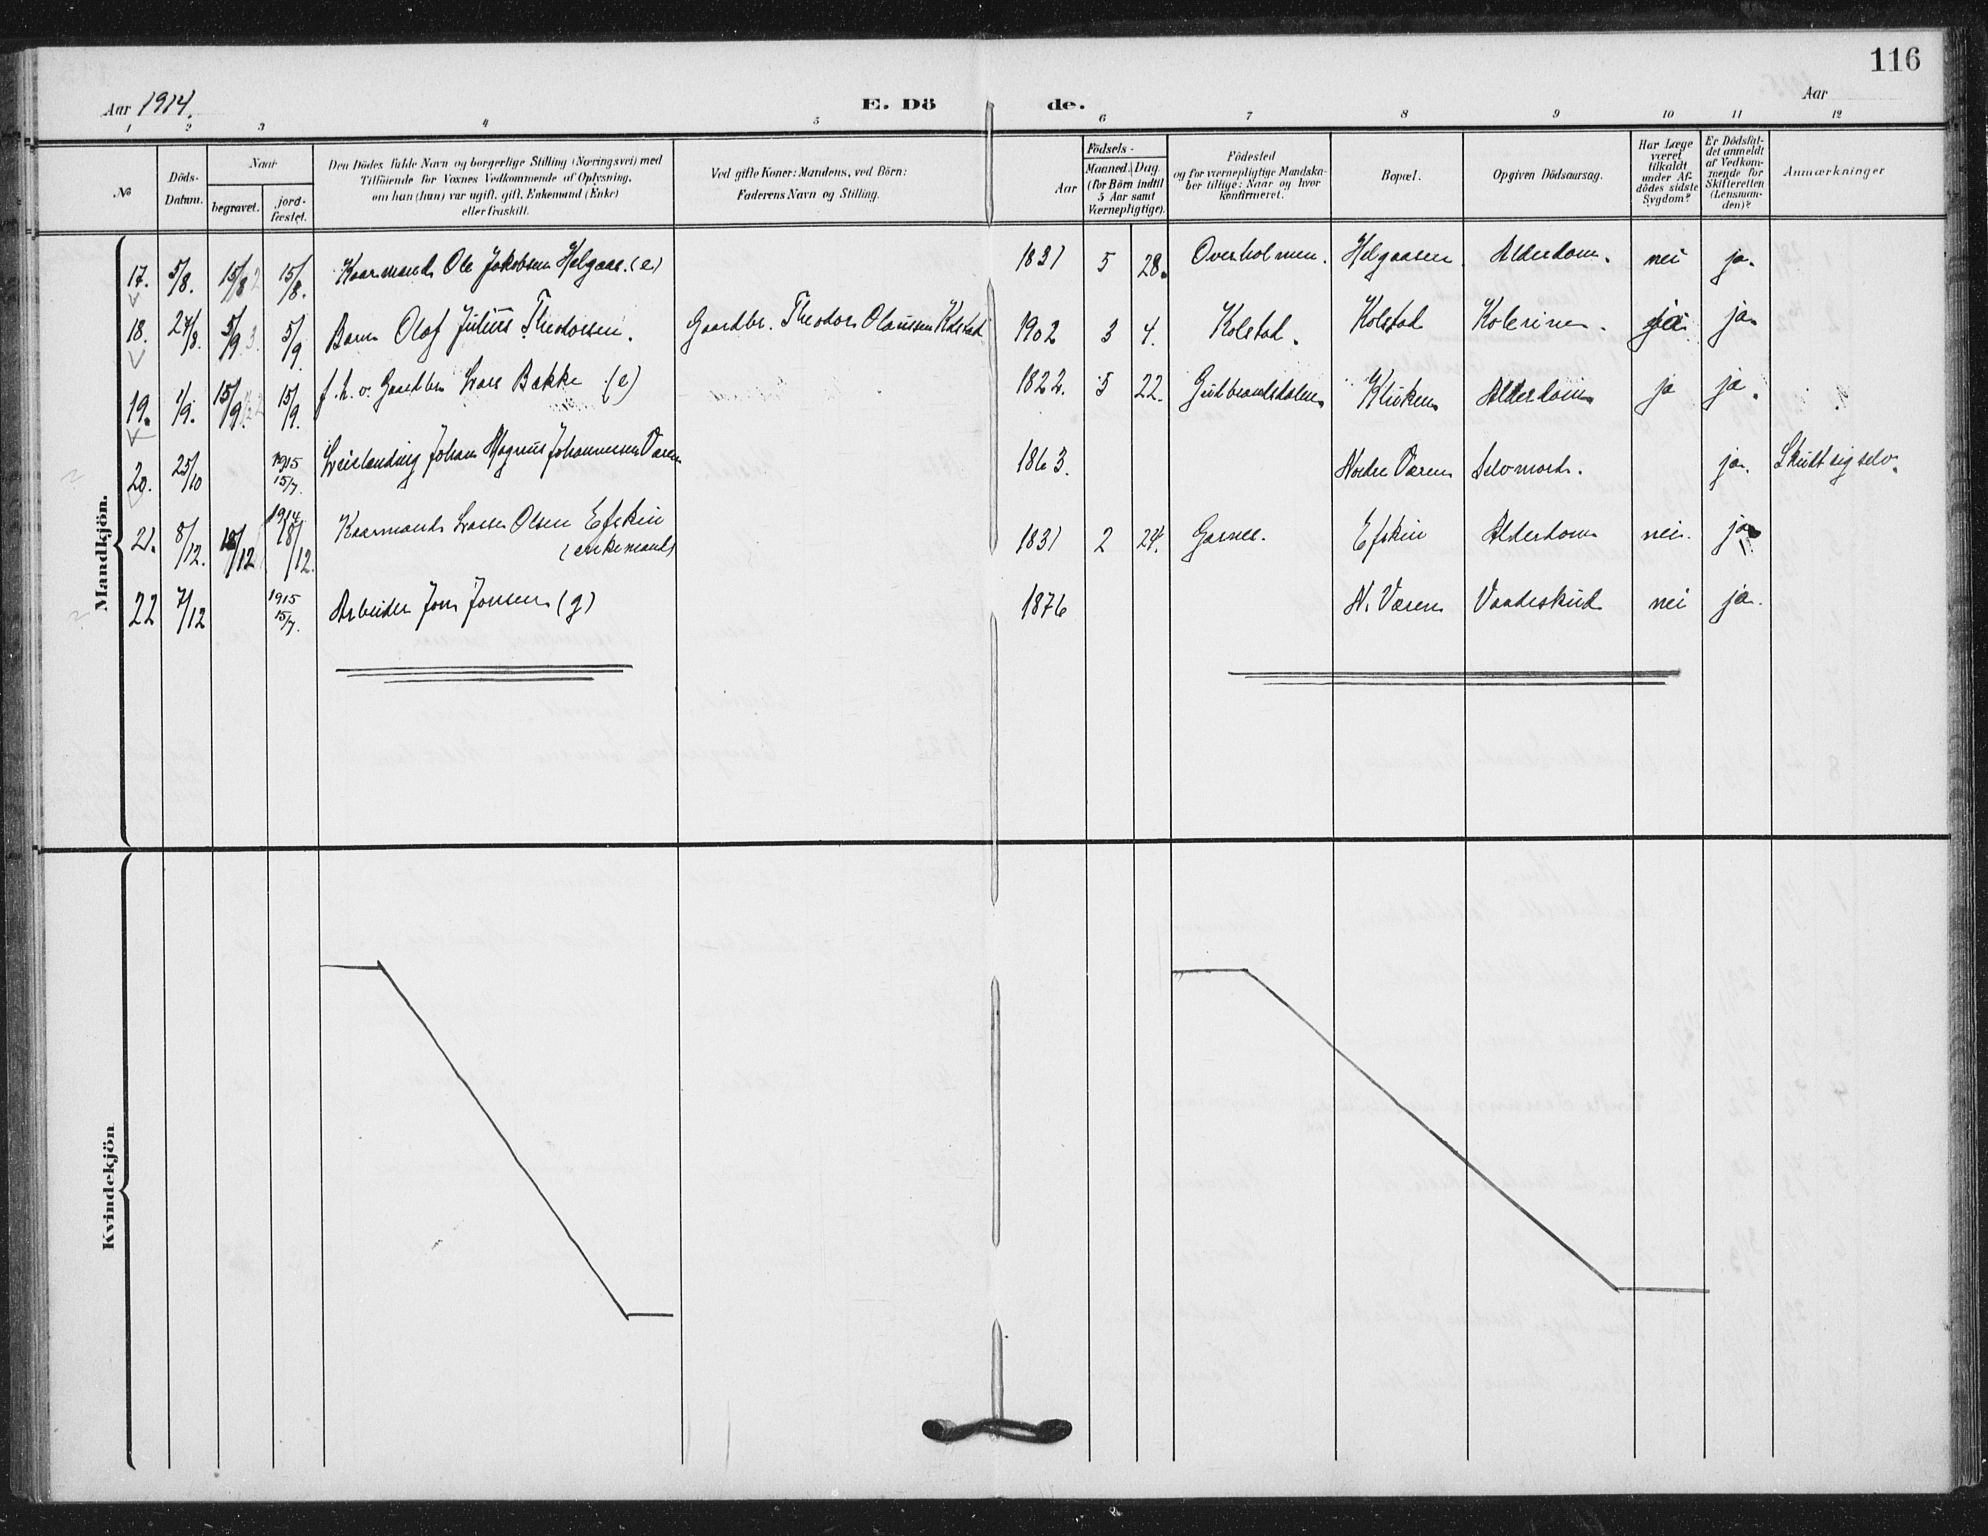 116
Aar 1914.
E. Dö de.
Aar
1 2 3 4 5 6 7 8 9 10 11 12
No
Döds-
Datum.
Naar
begravet.
jord-
fæstet.
Den Dödes fulde Navn og borgerlige Stilling (Næringsvei) med
Tilföiende for Voxnes Vedkommende af Oplysning,
om han (hun) var ugift, gift, Enkemand (Enke)
eller fraskilt.
Ved gifte Koner: Mandens, ved Börn:
Faderens Navn og Stilling.
Födsels-
Aar
Maaned. Dag.
(for Börn indtil
5 Aar samt
Værnepligtige).
Födested
og for værnepligtige Mandska-
ber tillige: Naar og hvor
konfirmeret.
Bopæl.
Opgiven Dödsaarsag.
Har Læge
været
tilkaldt
under Af-
dödes sidste
Sygdom?
Er Dödsfal-
det anmeldt
af Vedkom-
mende for
Skifteretten
(Lensman-
den)?
Anmærkninger
Mandkjön.
17. 5/8. 15/8 15/8. Kaarmand Ole Jakobsen Helgaas. (e) 1831 5 28. Overholmen. Helgaasen Alderdom. nei ja.
18. 27/8. 5/9 5/9. Barn Olaf Julius Theodorsen. Gaardbr. Theodor Olaussen Kolstad 1902 3 4. Kolstad. Kolstad Kolerine. ja ja.
19. 1/9. 15/9. 15/9. f.h.v. Gaardbr. Lars Bakke (e) 1822. 5 22. Gudbrandsdalen Kluken Alderdom ja ja.
20. 25/10 1915 15/7. Johan Magnus Johannessen Væren 1863. Nordre Væren Selvmord. ja. Skudt sig selv.
21. 8/12. 18/12 1914 18/12. Kaarmand Lasse Olsen Efskin
(enkemand) 1831 2 24. Garnes. Efskin Alderdom nei. ja
22 7/12 1915 15/7. Arbeider Jon Jonsen (g) 1876 N. Væren Vaadeskud nei ja.
Kvindekjön